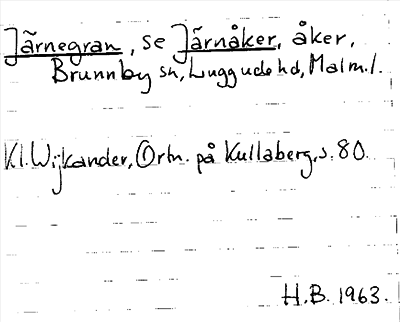 Järnegran, se Järnåker, åker,
Brunnby sn, Luggude hd, Malm. l.
Kl. Wijkander, Ortn. på Kullaberg, s. 80.
H.B. 1963.